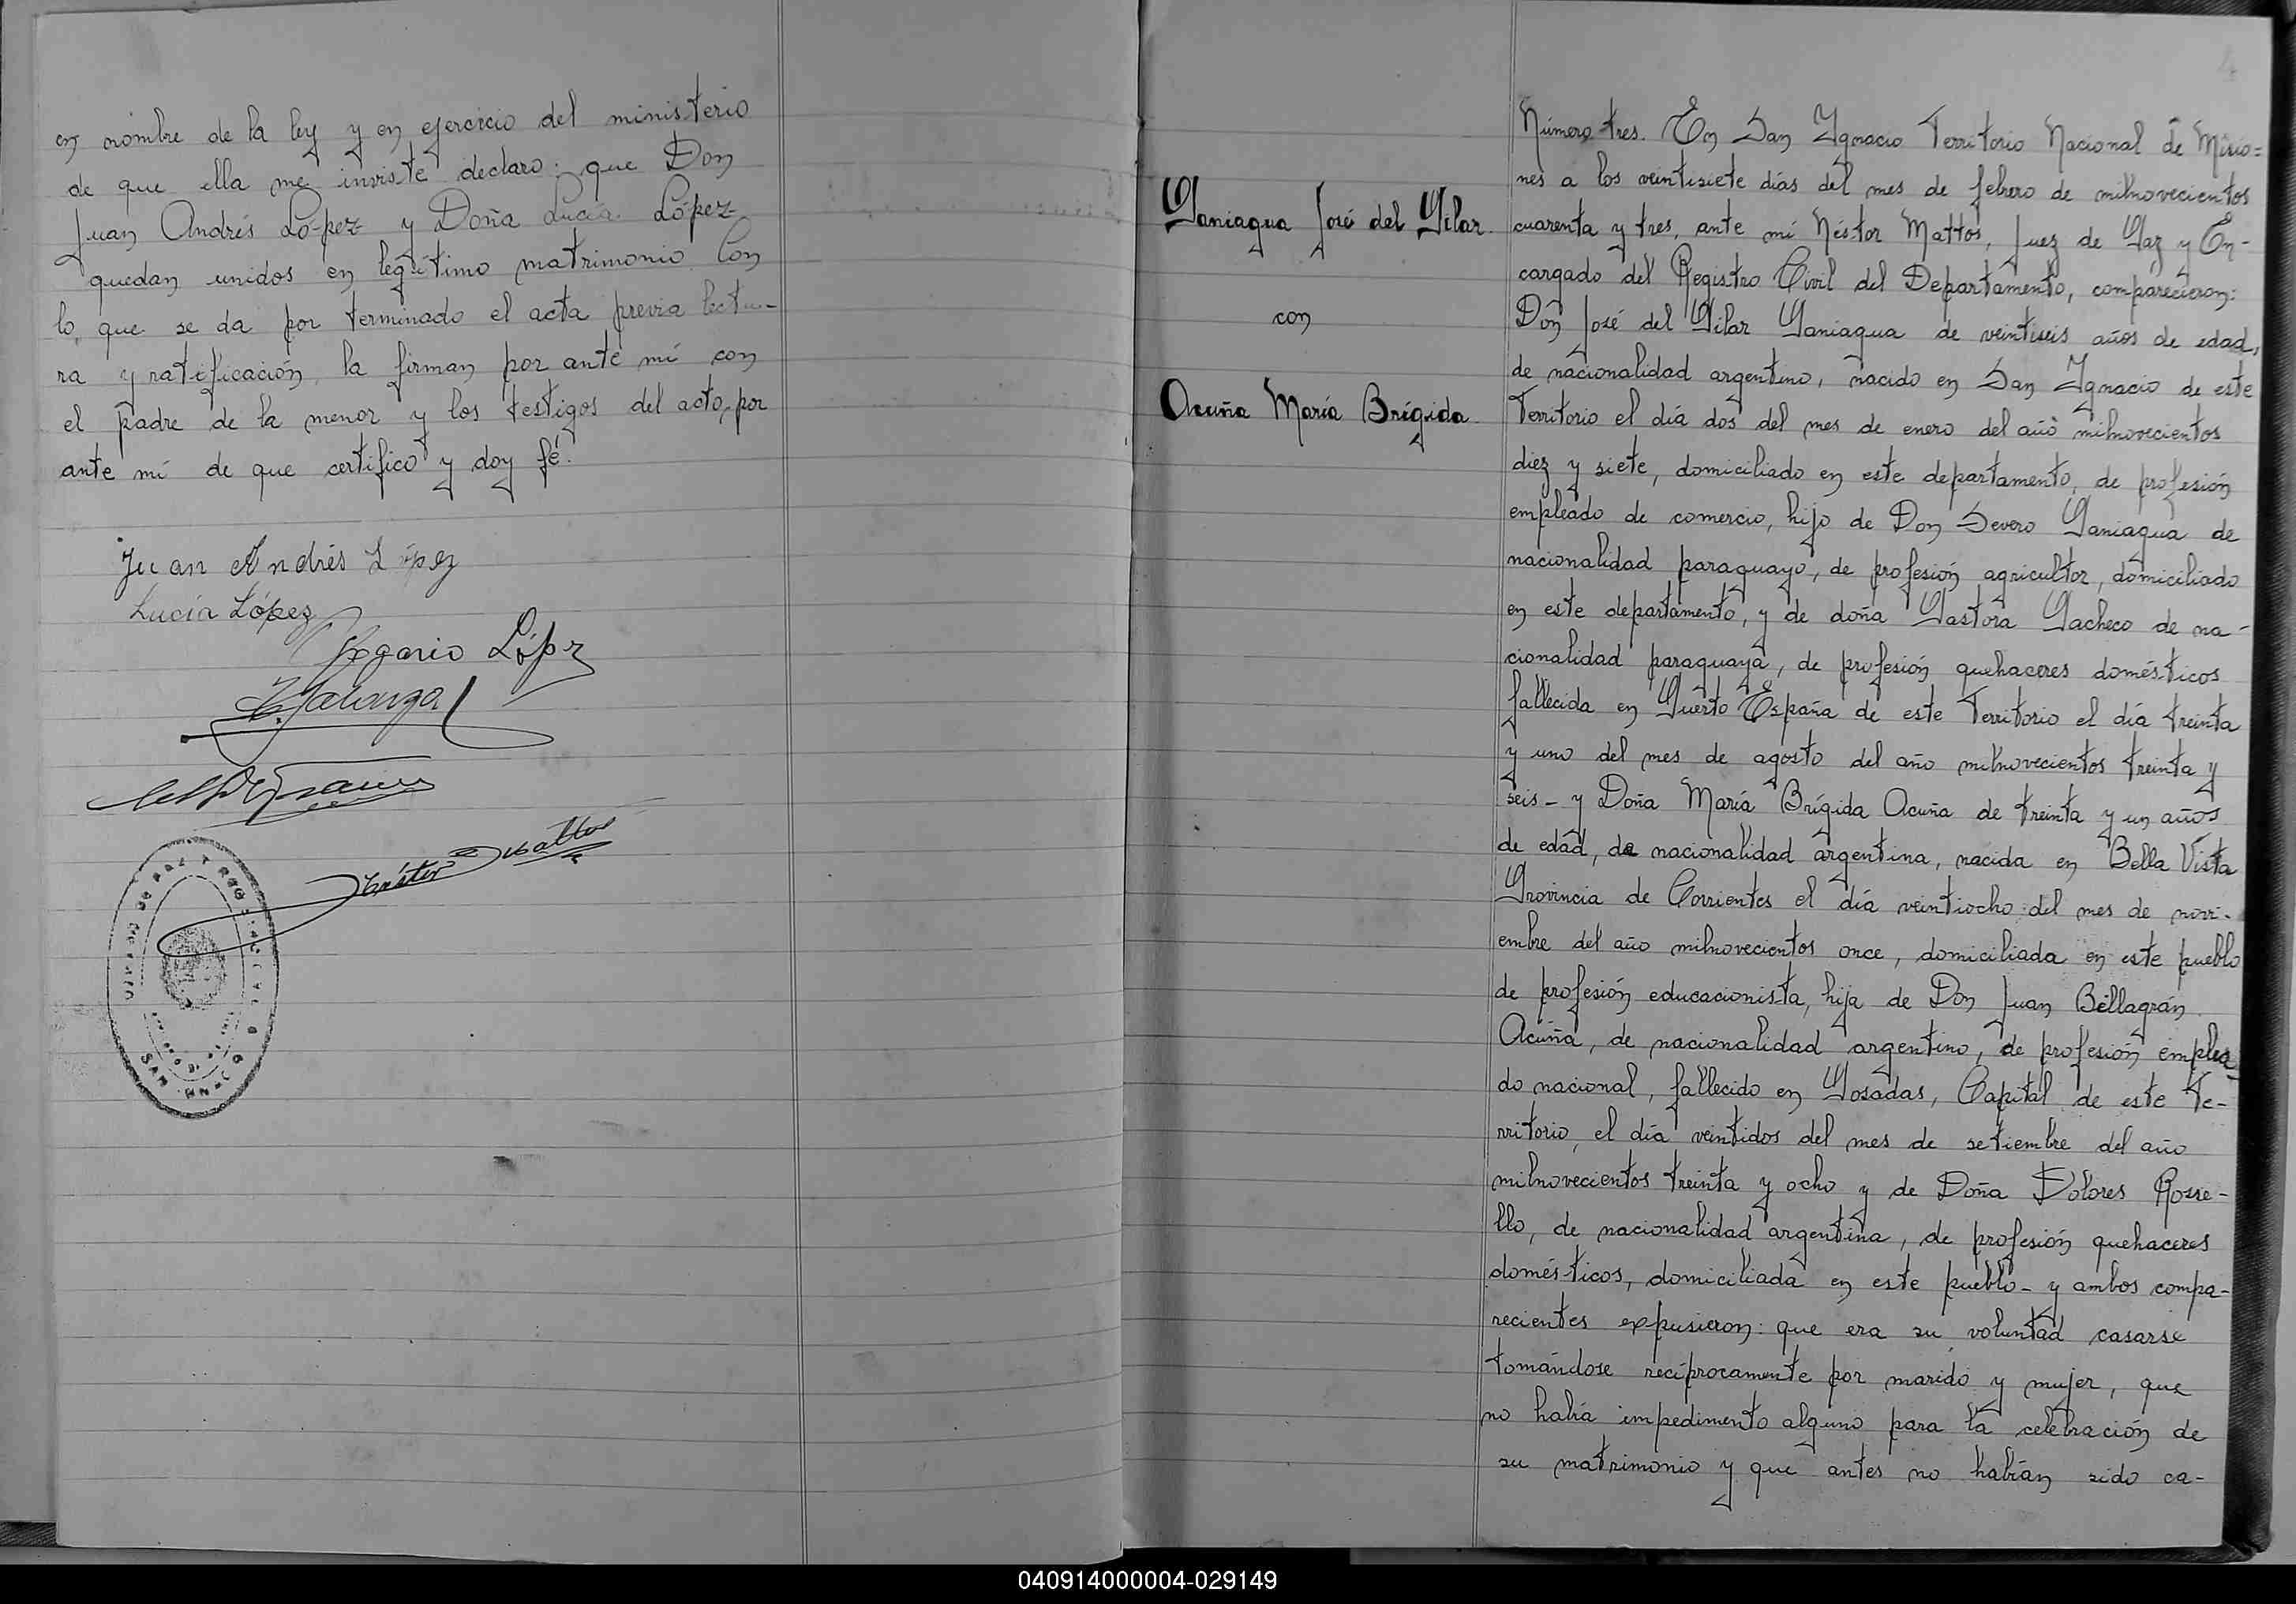 en nombre de la ley y en ejercicio del ministerio
de que ella me inviste declaro: que Don
Juan Andrés López y Doña Lucía López
quedan unidos en legítimo matrimonio. Con
lo que se da por terminado el acta previa lectu-
ra y ratificación, la firman por ante mí con
el padre de la menor y los testigos del acto, por
ante mí de que certifico y doy fé.
Juan Andrés López
Lucía López
López
Néstor Mattos
SAN
4
Número tres. En San Ygnacio Territorio Nacional de Misio=
nes a los veintisiete días del mes de febrero de milnovecientos
Paniagua José del Pilar.
cuarenta y tres, ante mí Néstor Mattos, Juez de Paz y En-
cargado del Registro Civil del Departamento, comparecieron:
con
Don José del Pilar Paniagua de veintiseis años de edad,
de nacionalidad argentino, nacido en San Ygnacio de este
Acuña María Brígida.
Territorio el día dos del mes de enero del año milnovecientos
diez y siete, domiciliado en este departamento, de profesión
empleado de comercio, hijo de Don Severo Paniagua de
nacionalidad paraguayo, de profesión agricultor, domiciliado
en este departamento, y de doña Pastora Pacheco de na-
cionalidad paraguaya, de profesión quehaceres domésticos
fallecida en Puerto España de este Territorio el día treinta
y uno del mes de agosto del año milnovecientos treinta y
seis - y Doña María Brígida Acuña de treinta y un años
de edad, de nacionalidad argentina, nacida en Bella Vista
Provincia de Corrientes el día veintiocho del mes de novi-
embre del año milnovecientos once, domiciliada en este pueblo
de profesión educacionista, hija de Don Juan Bellagrán
Acuña, de nacionalidad argentino, de profesión emplea-
do nacional, fallecido en Posadas, Capital de este Te-
rritorio, el día veintidos del mes de setiembre del año
milnovecientos treinta y ocho y de Doña Dolores Rosse-
llo, de nacionalidad argentina, de profesión quehaceres
domésticos, domiciliada en este pueblo - y ambos compa-
recientes expusieron: que era su voluntad casarse
tomándose recíprocamente por marido y mujer, que
no había impedimento alguno para la celebración de
su matrimonio y que antes no habían sido ca-
040914000004-029149